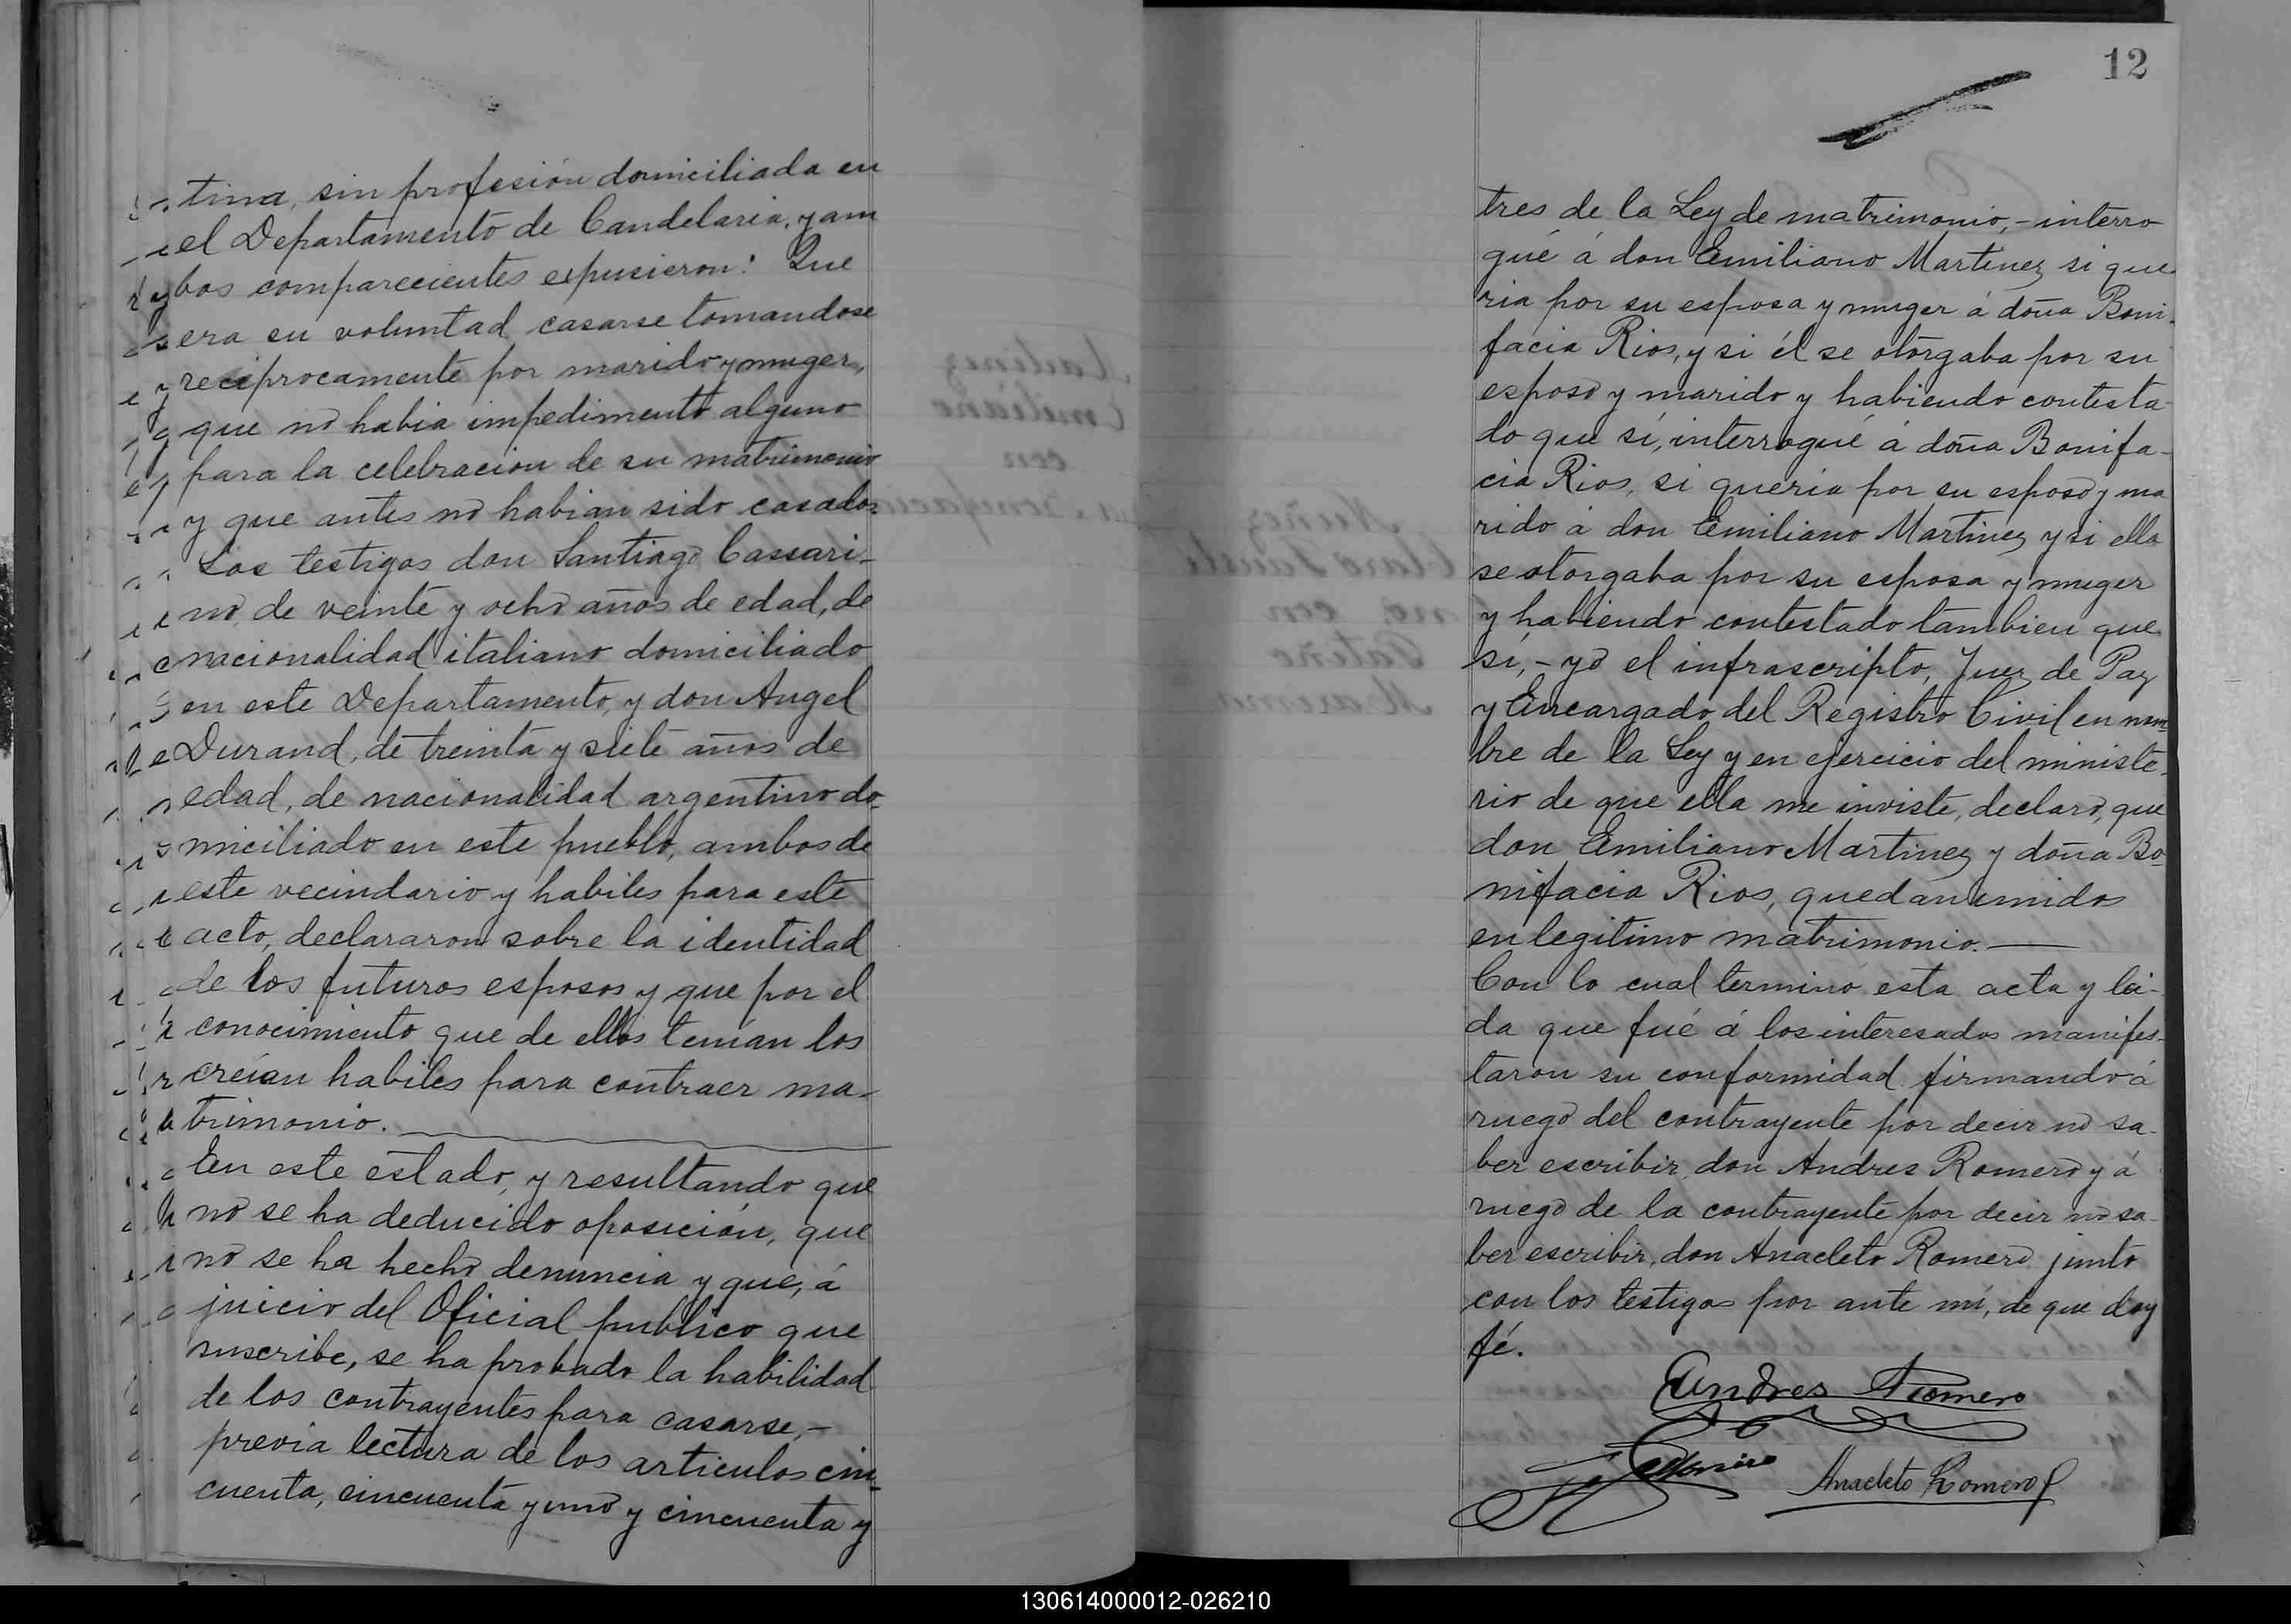 tina, sin profesión domiciliada en
el Departamento de Candelaria, y am
bos comparecientes expusieron: Que
era su voluntad casarse tomandose
reciprocamente por marido y muger,
que no habia impedimento alguno
para la celebracion de su matrimonio
y que antes no habian sido casados.
Los testigos don Santiago Cassari-
no, de veinte y ocho años de edad, de
nacionalidad italiano domiciliado
en este Departamento, y don Angel
Durand, de treinta y siete años de
edad, de nacionalidad argentino do-
miciliado en este pueblo, ambos de
este vecindario y habiles para este
acto, declararon sobre la identidad
de los futuros esposos y que por el
conocimiento que de ellos tenían los
creían habiles para contraer ma-
trimonio.
En este estado, y resultando que
no se ha deducido oposición, que
no se ha hecho denuncia y que, á
juicio del Oficial publico que
suscribe, se ha probado la habilidad
de los contrayentes para casarse, -
previa lectura de los articulos cin-
cuenta, cincuenta y uno y cincuenta y
12
tres de la Ley de matrimonio, - interro
gué á don Emiliano Martinez si que-
ria por su esposa y muger á doña Boni-
facia Rios, y si él se otorgaba por su
esposo y marido y habiendo contesta-
do que sí, interrogué á doña Bonifa-
cia Rios, si queria por su esposo y ma
rido á don Emiliano Martinez y si ella
se otorgaba por su esposa y muger
y habiendo contestado tambien que
sí, - yo el infrascripto, Juez de Paz
y Encargado del Registro Civil en nom
bre de la Ley y en ejercicio del ministe-
rio de que ella me inviste, declaro, que
don Emiliano Martinez y doña Bo-
nifacia Rios, quedan unidos
en legitimo matrimonio.
Con lo cual terminó esta acta y lei-
da que fué á los interesados manifes-
taron su conformidad firmando á
ruego del contrayente por decir no sa-
ber escribir, don Andres Romero y á
ruego de la contrayente por decir no sa-
ber escribir, don Anacleto Romero junto
con los testigos por ante mí, de que doy
fé.
Andres Romero
Anacleto Romero
130614000012-026210